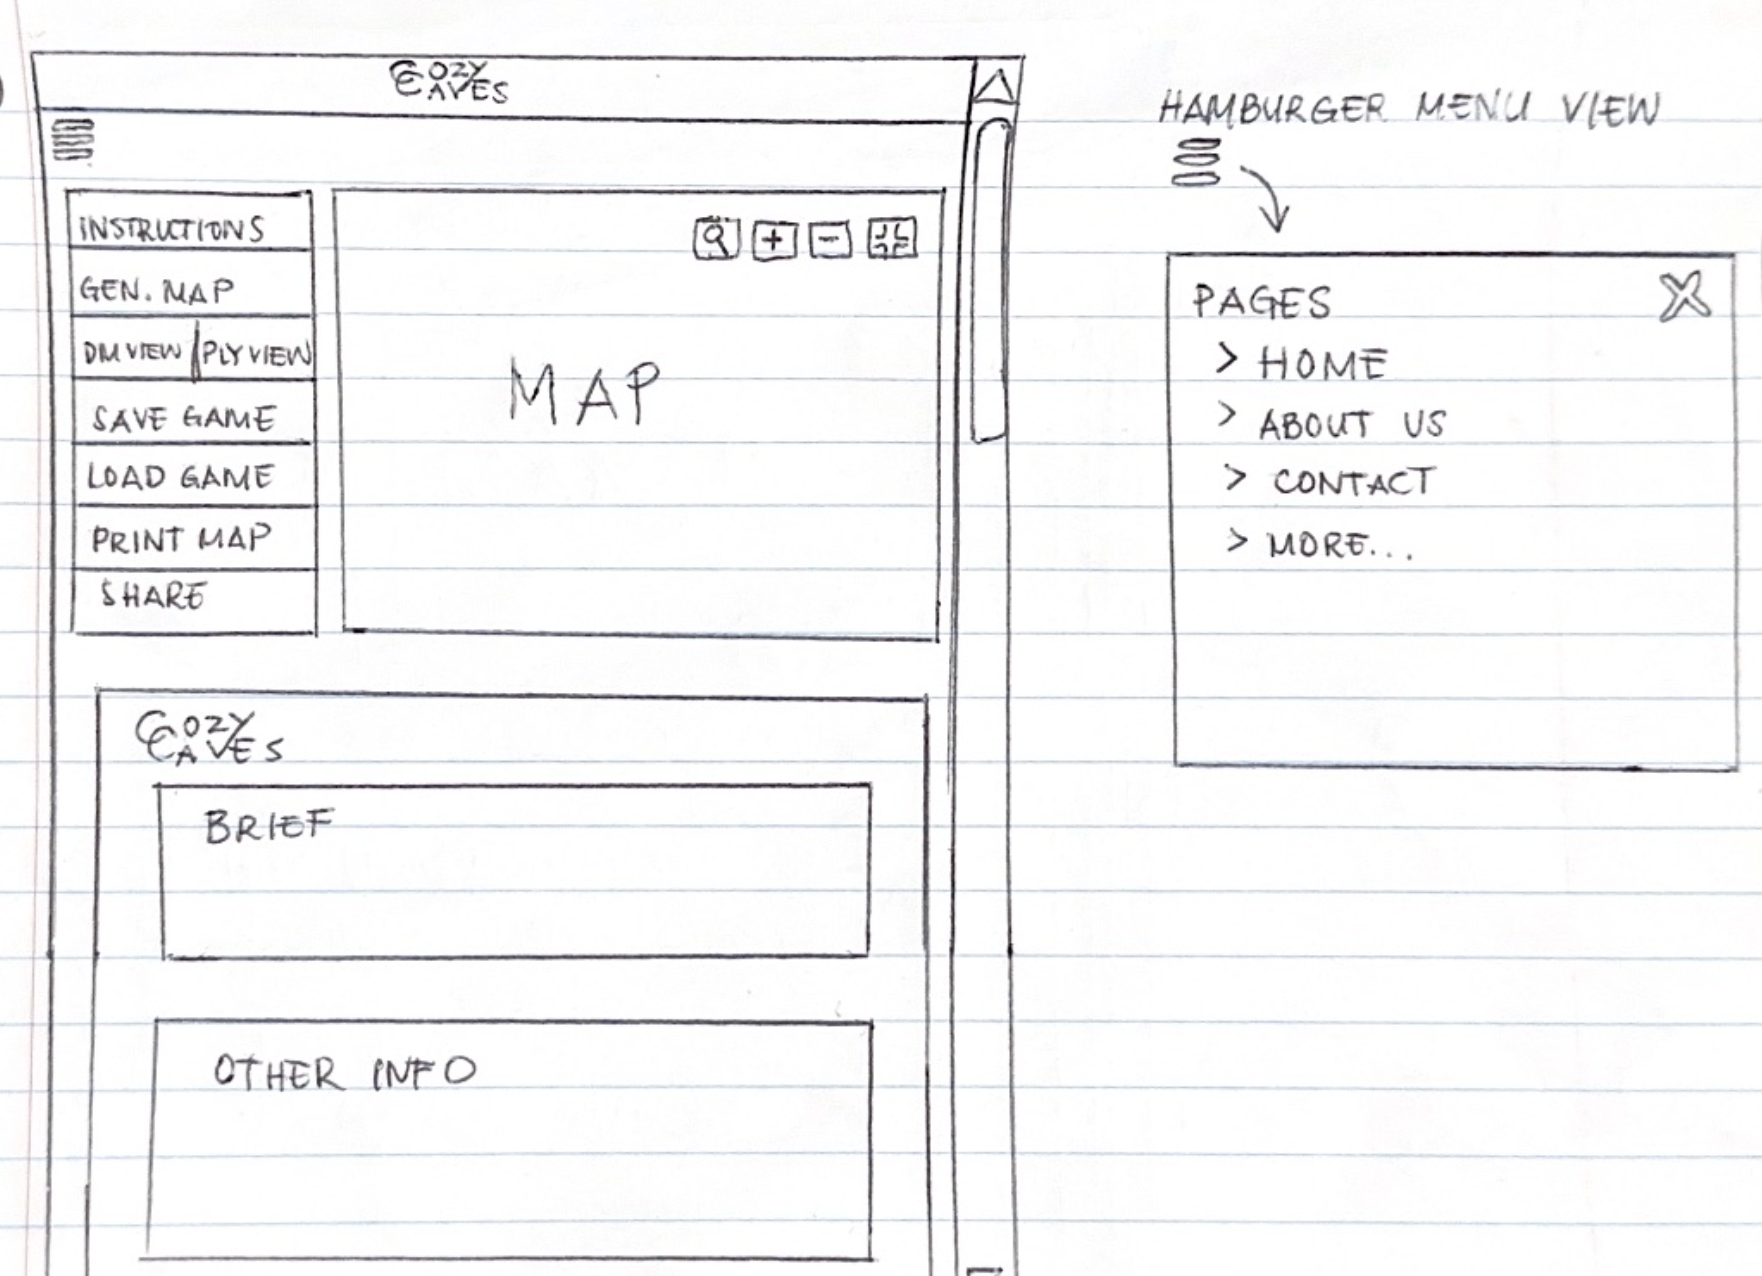 COZY
CAVES
INSTRUCTIONS
GEN. MAP
DM VIEW | PLY VIEW
SAVE GAME
LOAD GAME
PRINT MAP
SHARE
+ -
MAP
COZY
CAVES
BRIEF
OTHER INFO
HAMBURGER MENU VIEW
PAGES X
> HOME
> ABOUT US
> CONTACT
> MORE...